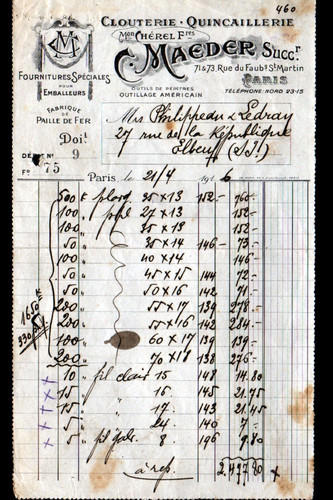 460
CLOUTERIE · QUINCAILLERIE
Mon CHÉREL Fres
C. MAEDER Succr.
71 & 73, Rue du Faubg St Martin
PARIS
TÉLÉPHONE: NORD 23-15
CM
FOURNITURES SPÉCIALES
POUR
EMBALLEURS
OUTILS DE PEINTRES
OUTILLAGE AMÉRICAIN
FABRIQUE
DE
PAILLE DE FER
Doit
9
Fo 75
Mrs Philippeau & Ledray
27 rue de la République
Elbeuf (S.I.)
Paris, le 21/4 191 6
500 k 35 × 13 152 760
100 27 × 13 152
100 35 × 13 152
50 35 × 14 146 73
100 40 × 14 146
50 45 × 15 144 72
50 50 × 16 142 71
200 55 × 17 139 278
200 55 × 16 142 284
100 60 × 17 139 139
200 70 × 18 138 276
1650 k
330
10 pl clair 15 148 14.80
15 16 145 21.75
15 17 143 21.45
5 24 140 7
5 8 196 9.80
à rep.